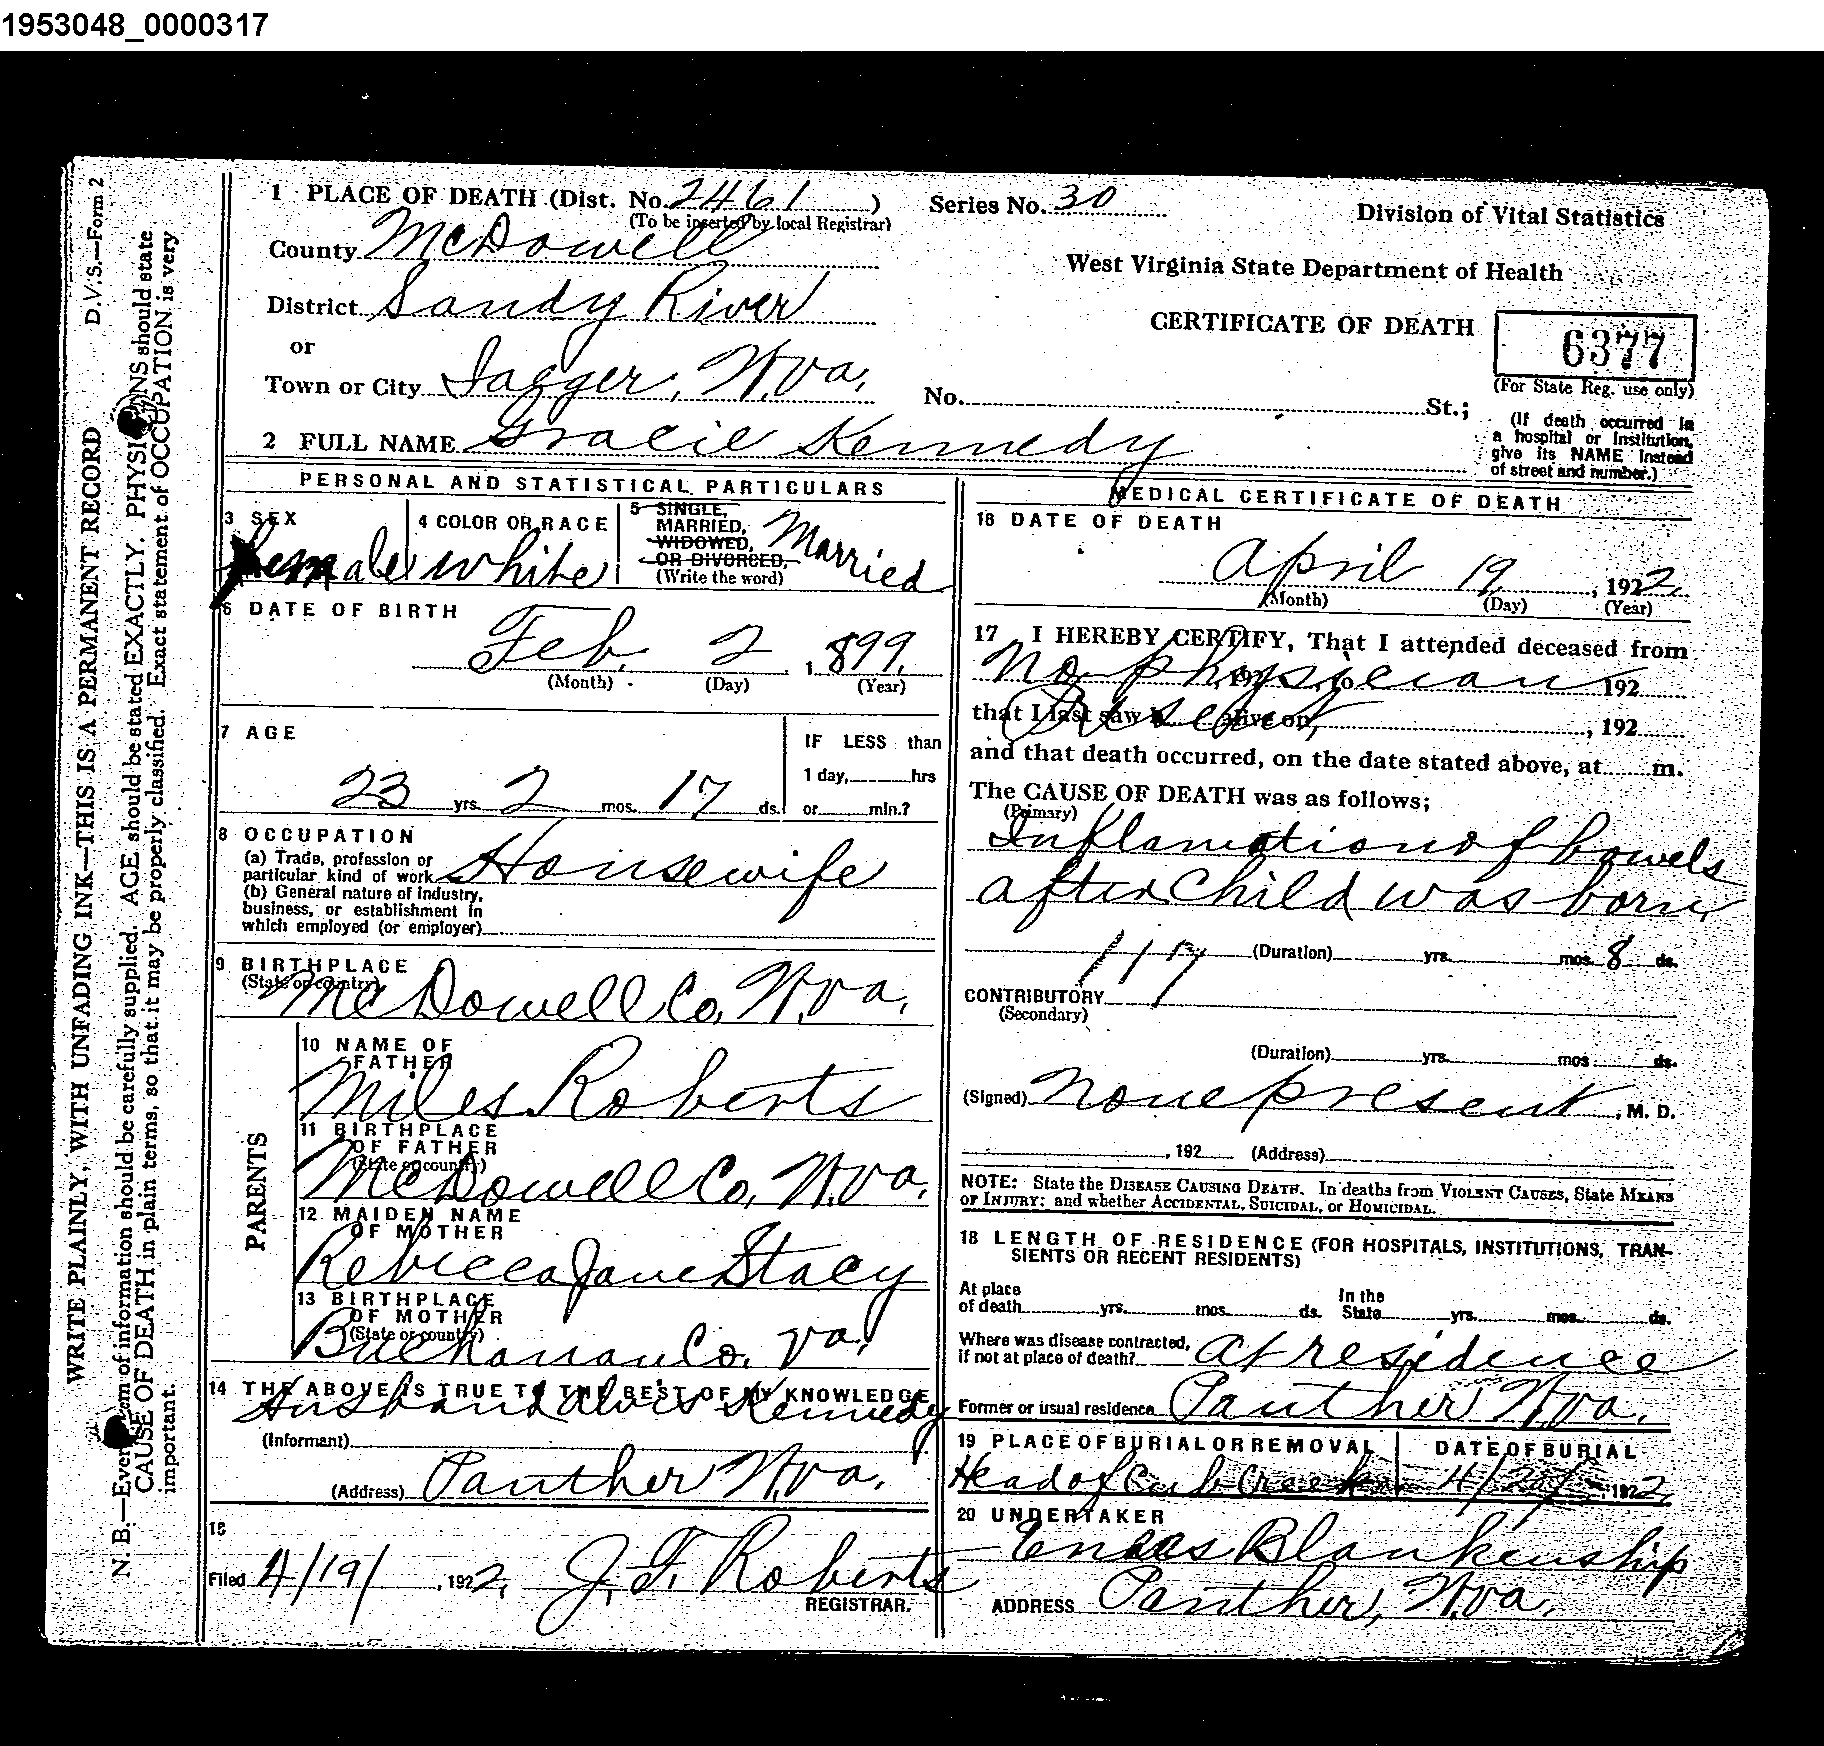 1953048_0000317
D.V.S.—Form 2
WRITE PLAINLY, WITH UNFADING INK—THIS IS A PERMANENT RECORD
N. B.—Every item of information should be carefully supplied. AGE should be stated EXACTLY. PHYSICIANS should state
CAUSE OF DEATH in plain terms, so that it may be properly classified. Exact statement of OCCUPATION is very
important.
1 PLACE OF DEATH (Dist. No. 2461 )
(To be inserted by local Registrar)
Series No. 30
Division of Vital Statistics
County McDowell
West Virginia State Department of Health
District Sandy River
CERTIFICATE OF DEATH
6377
(For State Reg. use only)
or
Town or City Iaeger, W.Va.
No. St.;
(If death occurred in
a hospital or institution,
give its NAME instead
of street and number.)
2 FULL NAME Gracie Kennedy
PERSONAL AND STATISTICAL PARTICULARS
3 SEX
Female
4 COLOR OR RACE
white
5 SINGLE,
MARRIED,
WIDOWED,
OR DIVORCED,
(Write the word)
Married
6 DATE OF BIRTH
Feb. 2 , 1899.
(Month) (Day) (Year)
7 AGE
23 yrs. 2 mos. 17 ds.
IF LESS than
1 day, hrs
or min.?
8 OCCUPATION
(a) Trade, profession or
particular kind of work Housewife
(b) General nature of industry,
business, or establishment in
which employed (or employer)
9 BIRTHPLACE
(State or country)
McDowell Co, W.Va.
PARENTS
10 NAME OF
FATHER
Miles Roberts
11 BIRTHPLACE
OF FATHER
(State or country)
McDowell Co, W.Va.
12 MAIDEN NAME
OF MOTHER
Rebecca Jane Stacy
13 BIRTHPLACE
OF MOTHER
(State or country)
Buchanan Co. Va.
14 THE ABOVE IS TRUE TO THE BEST OF MY KNOWLEDGE
Husband Kennedy
(Informant)
(Address) Panther W.Va.
15
Filed 4/19/ , 1922, J. F. Roberts
REGISTRAR.
MEDICAL CERTIFICATE OF DEATH
16 DATE OF DEATH
April 19, , 1922,
(Month) (Day) (Year)
17 I HEREBY CERTIFY, That I attended deceased from
No physician 192
, 192 , to
that I last saw h alive on , 192
Present,
and that death occurred, on the date stated above, at m.
The CAUSE OF DEATH was as follows;
(Primary)
Inflamation of bowels
after child was born
117 (Duration) yrs. mos. 8 ds.
CONTRIBUTORY
(Secondary)
(Duration) yrs. mos. ds.
(Signed) None present , M. D.
, 192 (Address)
NOTE: State the DISEASE CAUSING DEATH. In deaths from VIOLENT CAUSES, State MEANS
OF INJURY; and whether ACCIDENTAL, SUICIDAL, or HOMICIDAL.
18 LENGTH OF RESIDENCE (FOR HOSPITALS, INSTITUTIONS, TRAN-
SIENTS OR RECENT RESIDENTS)
At place
of death yrs. mos. ds.
In the
State yrs. mos. ds.
Where was disease contracted,
if not at place of death? at residence
Former or usual residence Panther W.Va.
19 PLACE OF BURIAL OR REMOVAL
Head of Cub Creek
DATE OF BURIAL
4/20/ , 1922,
20 UNDERTAKER
Eneas Blankenship
ADDRESS Panther, W.Va.